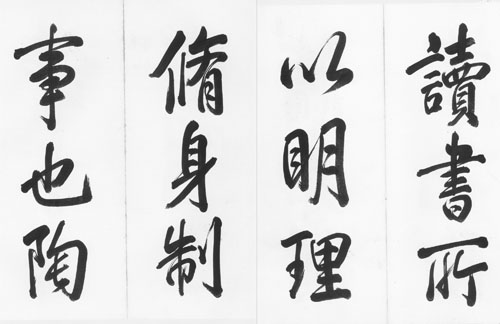 讀書所
以明理
脩身制
事也陶